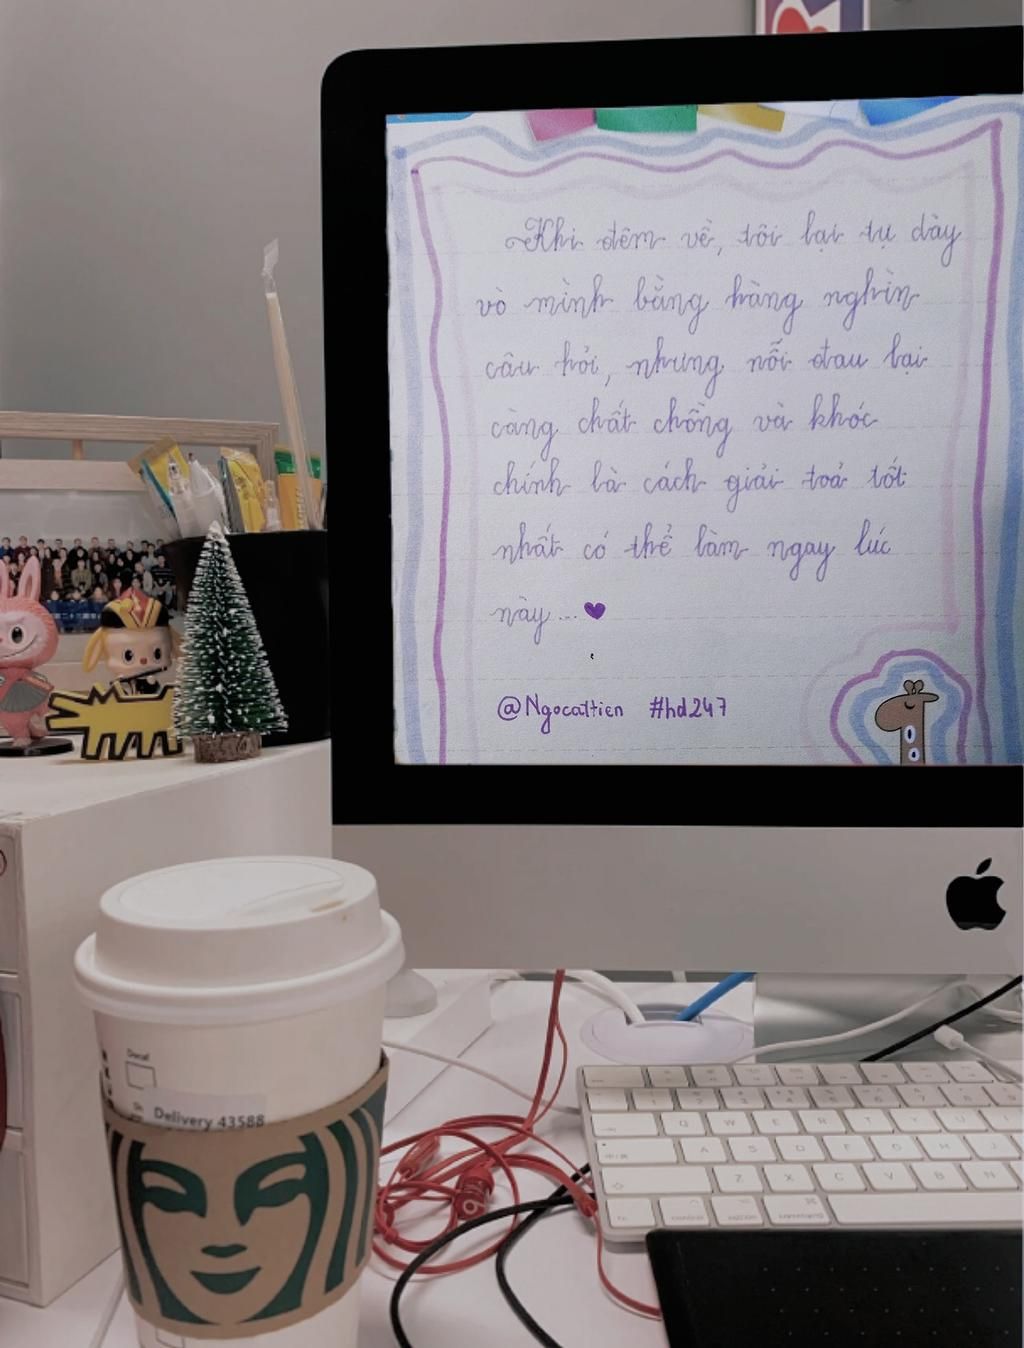 Khi đêm về, tôi lại tự dày
vò mình bằng hàng nghìn
câu hỏi, nhưng nỗi đau lại
càng chất chồng và khóc
chính là cách giải toả tốt
nhất có thể làm ngay lúc
này...
@Ngocattien #hd247
Decaf
Delivery 43588
Q W E R T Y U
A S D F G H J
Z X C V B N